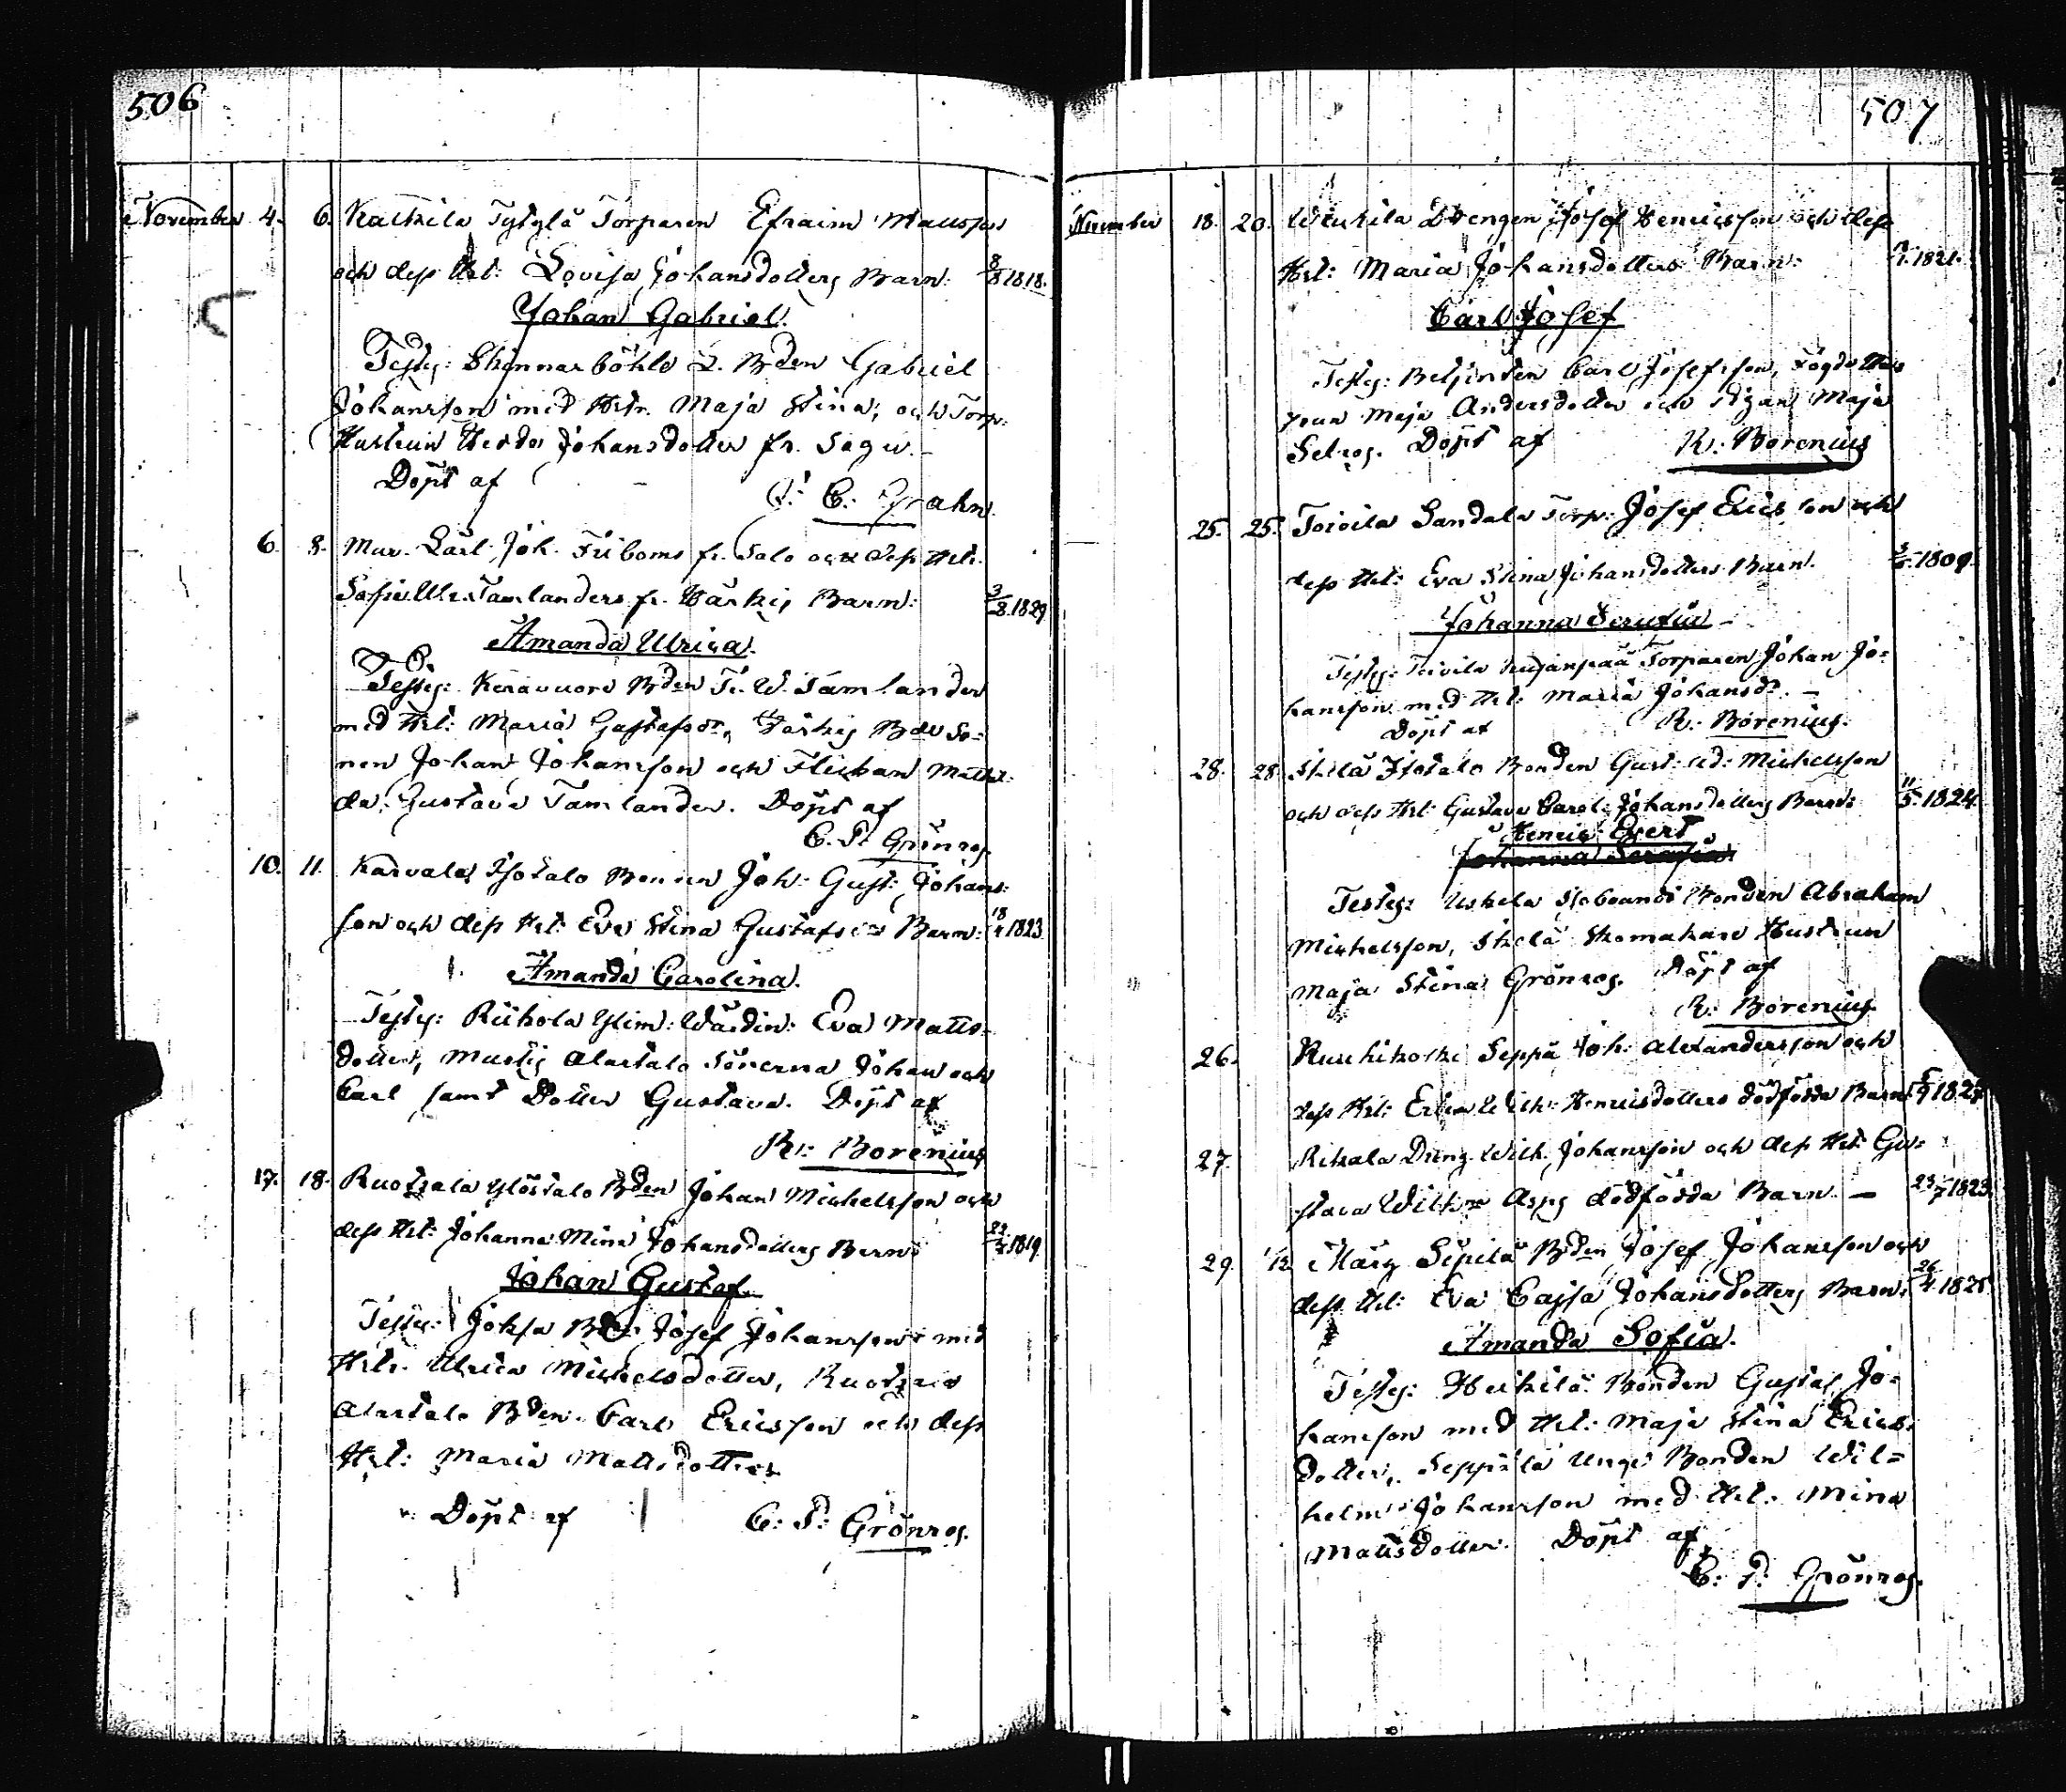 506
November 4. 6. Kaukila Tytylä Torparen Efraim Mattsson
och dess Hst: Lovisa Johansdotters Barn: 8/8 1818.
Johan Gabriel.
Testes: Skinnarböhle L. Bden Gabriel
Johansson med Hstr. Maja Stina, och Torp.
Hustrun Hedda Johansdotter fr. Sagu.
Döpt af
G. Grahn.
6. 8. Mur. Lärl. Joh. Friboms fr. Salo och dess Hst.
Sofia Ulr. Tamlanders fr. Barn: 3/8 1829
Amanda Ulrica.
Testes: Keravuore Bden Fr. W. Tamlander
med Hst: Maria Gustafsdr, Bde So-
nen Johan Johansson och Flickan Mathil-
da Gustava Tamlander. Döpt af
C. P. Grönroos.
10. 11. Karvala Isotalo Bonden Joh: Gust: Johans-
son och dess Hst: Eva Stina Gustafsdrs Barn: 18/4 1823
Amanda Carolina.
Testes: Riihola Ylim: Wärdin: Eva Matts-
dotter, Alastalo Sönerna Johan och
Carl samt Dotter Gustava. Döpt af
R: Borenius
17. 18. Ruotsala Ylöstalo Bden Johan Michelsson och
dess Hst: Johanna Mina Johansdotters Barn: 1819
Johan Gustaf
Testes: Joksa Bden Josef Johansson med
Hstr. Ulrica Michelsdotter, Ruotsala
Alastalo Bden Carl Ericsson och dess
Hst: Maria Mattsdotter
Döpt af C: P: Grönroos.
507
November 18. 20. Drengen Josef Henricsson och dess
Hst: Maria Johansdotters Barn: 1821.
Carl Josef
Testes: Carl Josefsson,
Maja Andersdotter och Pigan Maja
Selroos. Döpt af R. Borenius
25. 25. Toivila Sandala Torp: Josef Ericsson och
dess Hst: Eva Stina Johansdotters Barn. 1809.
Johanna Serafia
Testes: Toivila Torparen Johan Jo-
hansson med Hst: Maria Johansdr.
Döpt af R. Borenius.
28. 28. Isotalo Bonden Gust: Ad: Michelsson
och dess Hst: Gustava Carol: Johansdotters Barn: 11/5 1824.
Henric Evert
Johanna Serafia
Testes: Uskela Bonden Abraham
Michelsson, Skomakare Hustrun
Maja Stina Grönroos. Döpt af
R: Borenius
26. Seppä Joh. Alexandersson och
dess Hst: Wilh: Henricsdotters dödfödda Barn
27. Dreng. Wilh. Johansson och dess Hst: Gu-
stava Wilh:na Asps dödfödda Barn. — 1823
29. 1/12 Sipilä Bden Josef Johansson och
dess Hst: Eva Cajsa Johansdotters Barn: 26/4 1825
Amanda Sofia.
Testes: Heikilä Bonden Gustaf Jo-
hansson med Hst: Maja Stina Erics-
dotter, Seppilä Unge Bonden Wil-
helm Johansson med Hst: Mina
Mattsdotter. Döpt af
C: P: Grönroos.